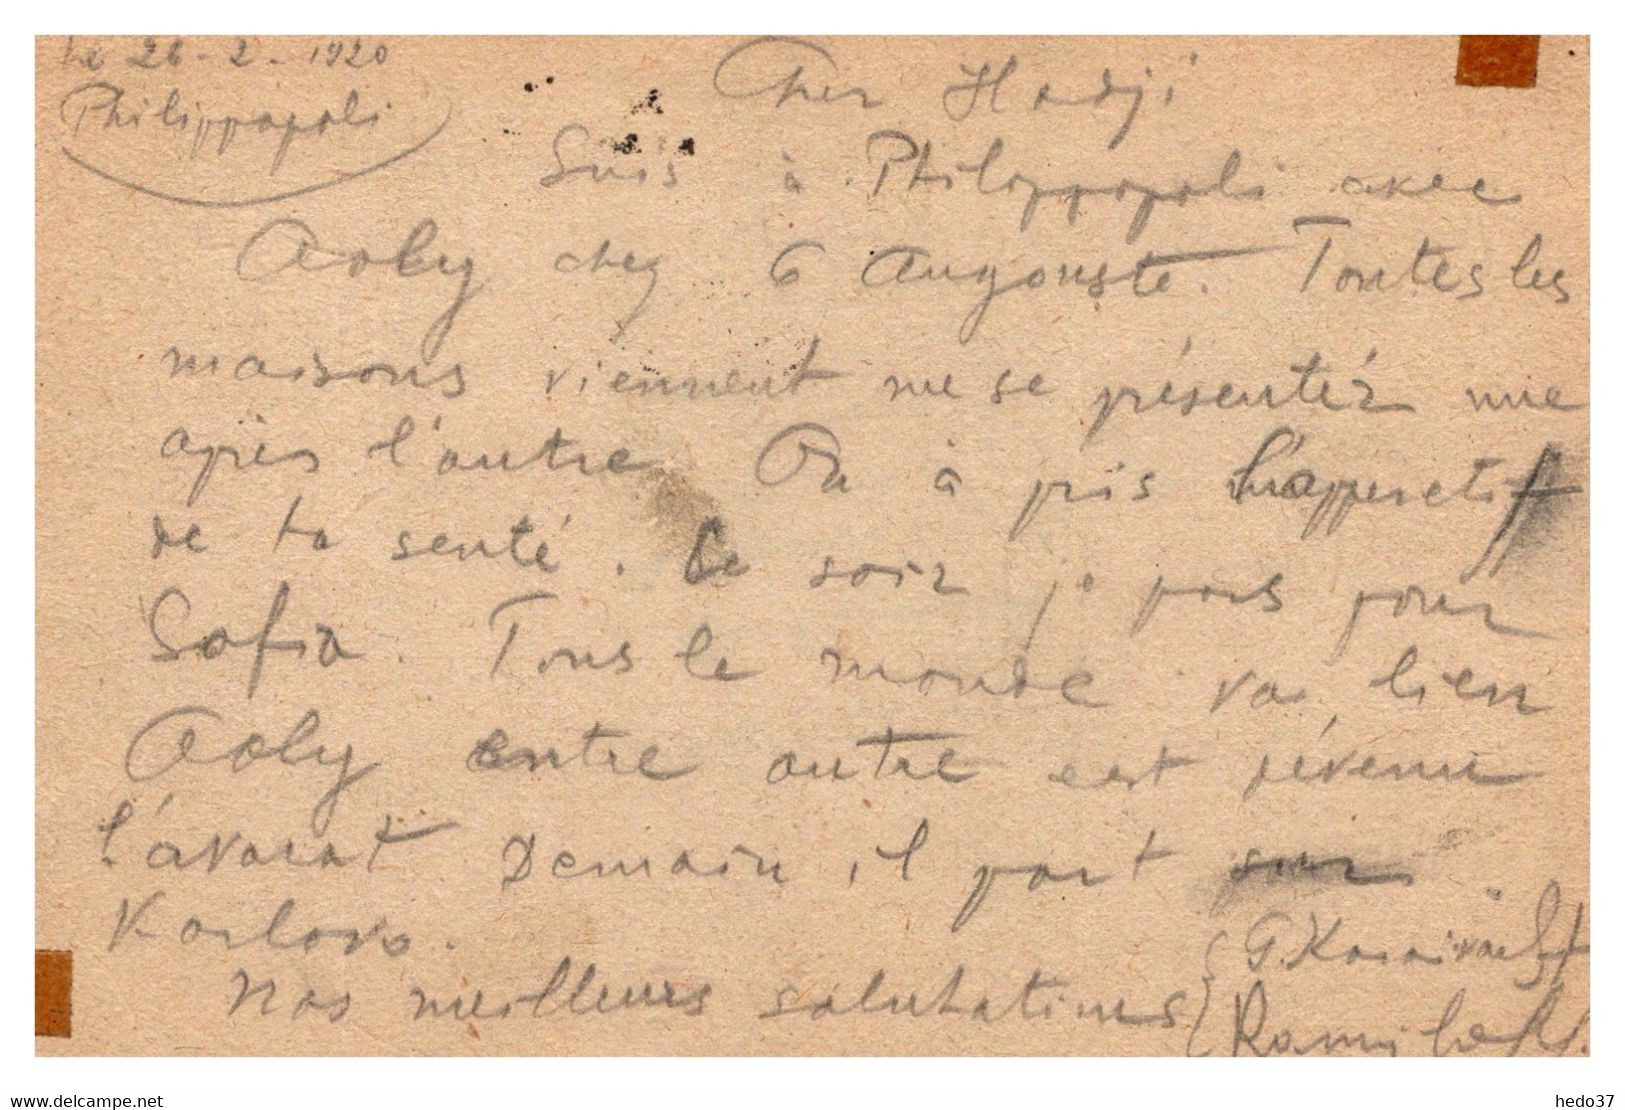 Le 26-2-1920
Philippopoli
Cher Hadji
Suis à Philippopoli avec
Aoly chez G Angouste. Toutes les
maisons viennent me se présenter une
après l'autre On à pris l'apperetif
de ta senté. Ce soir je pars pour
Sofia. Tous le monde va bien
Aoly entre autre est dévenu
l'avocat Demain il part pour
Karlovo.
Nos meilleurs salutations
G. Karaivanoff
delcampe.net
hedo37